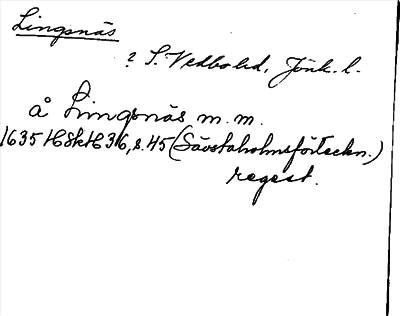 Lingsnäs
? S. Vedbo hd, Jönk. l.
å Lingsnäs m. m.
1635 HSkH 36, s. 45 (Sävstaholmsförteckn.)
regest.